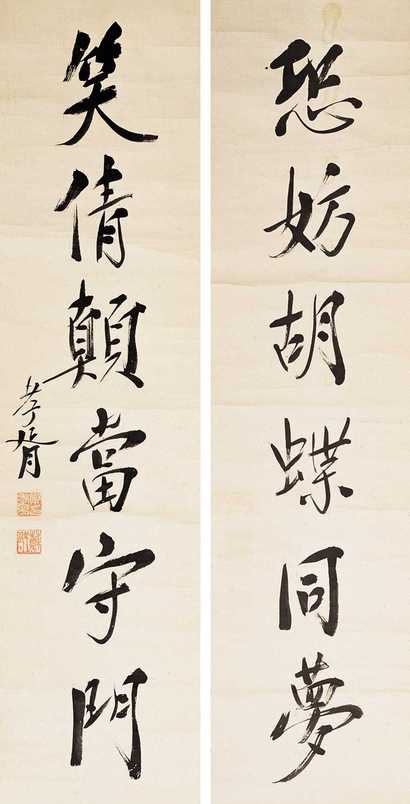 恐妨胡蝶同夢
笑倩顛當守門
孝胥